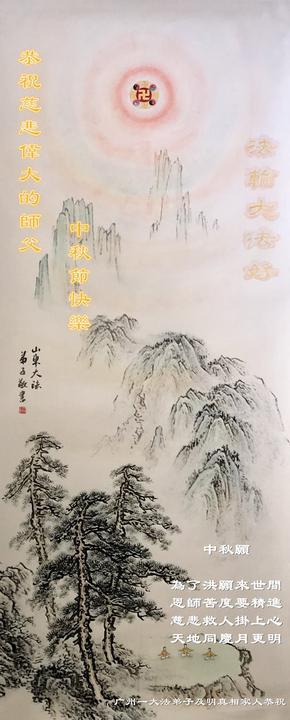 恭祝慈悲偉大的師父
中秋節快樂
法輪大法好
山東大法
弟子敬畫
中秋願
為了洪願來世間
恩師苦度要精進
慈悲救人掛上心
天地同慶月更明
广州一大法弟子及明真相家人恭祝